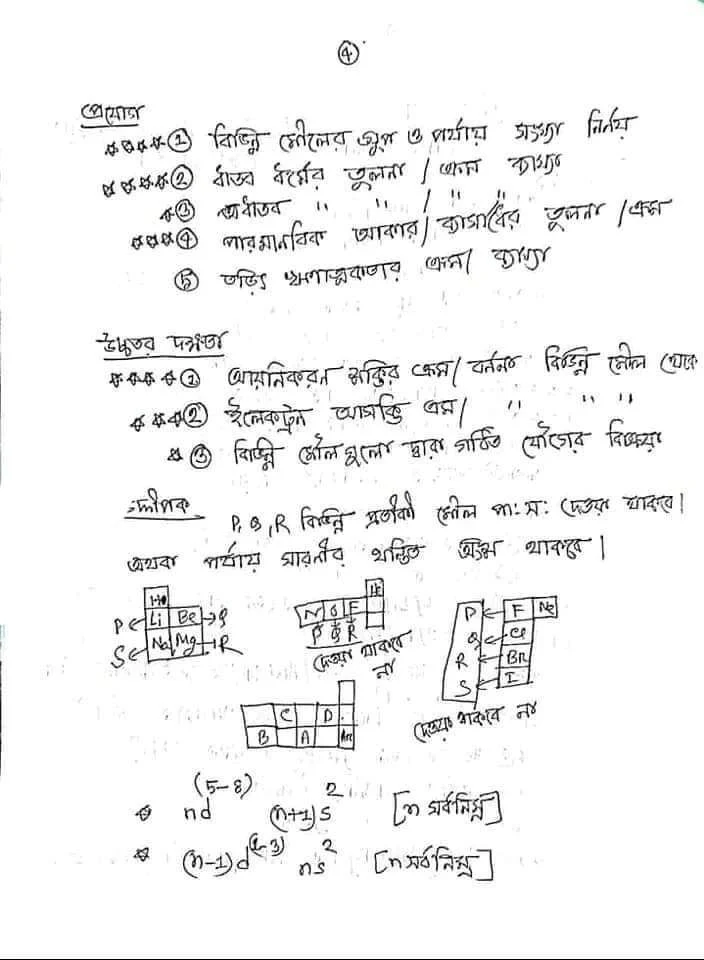 ④
প্রয়োগ
☆☆☆☆① বিভিন্ন মৌলের গ্রুপ ও পর্যায় সংখ্যা নির্নয়
☆☆☆☆② ধাতব ধর্মের তুলনা / ক্রম ব্যাখ্যা
☆③ অধাতব " " / " "
☆☆☆④ পারমানবিক আকার/ব্যাসার্ধের তুলনা /ক্রম
⑤ তড়িৎ ঋণাত্মকতার ক্রম/ ব্যাখ্যা
উচ্চতর দক্ষতা
☆☆☆☆① আয়নিকরন শক্তির ক্রম/ বর্ননা বিভিন্ন মৌল থেকে
☆☆☆② ইলেকট্রন আসক্তি ক্রম/ " " "
☆③ বিভিন্ন মৌল মুলো দ্বারা গঠিত যৌগের বিক্রিয়া
উদ্দীপক
P, Q, R বিভিন্ন প্রতীকী মৌল পা: স: দেওয়া থাকবে।
অথবা পর্যায় সারনীর খন্ডিত অংশ থাকবে।
P Li Be Q
S Na Mg R
He
N O F
P Q R
দেওয়া থাকবে না
P F Ne
Q Cl
R BR
S I
দেওয়া থাকবে না
C D
B A Ar
☆ nd(5-8) (n+1)s2 [n সর্বনিম্ন]
☆ (n-1)d(2-3) ns2 [n সর্বনিম্ন]